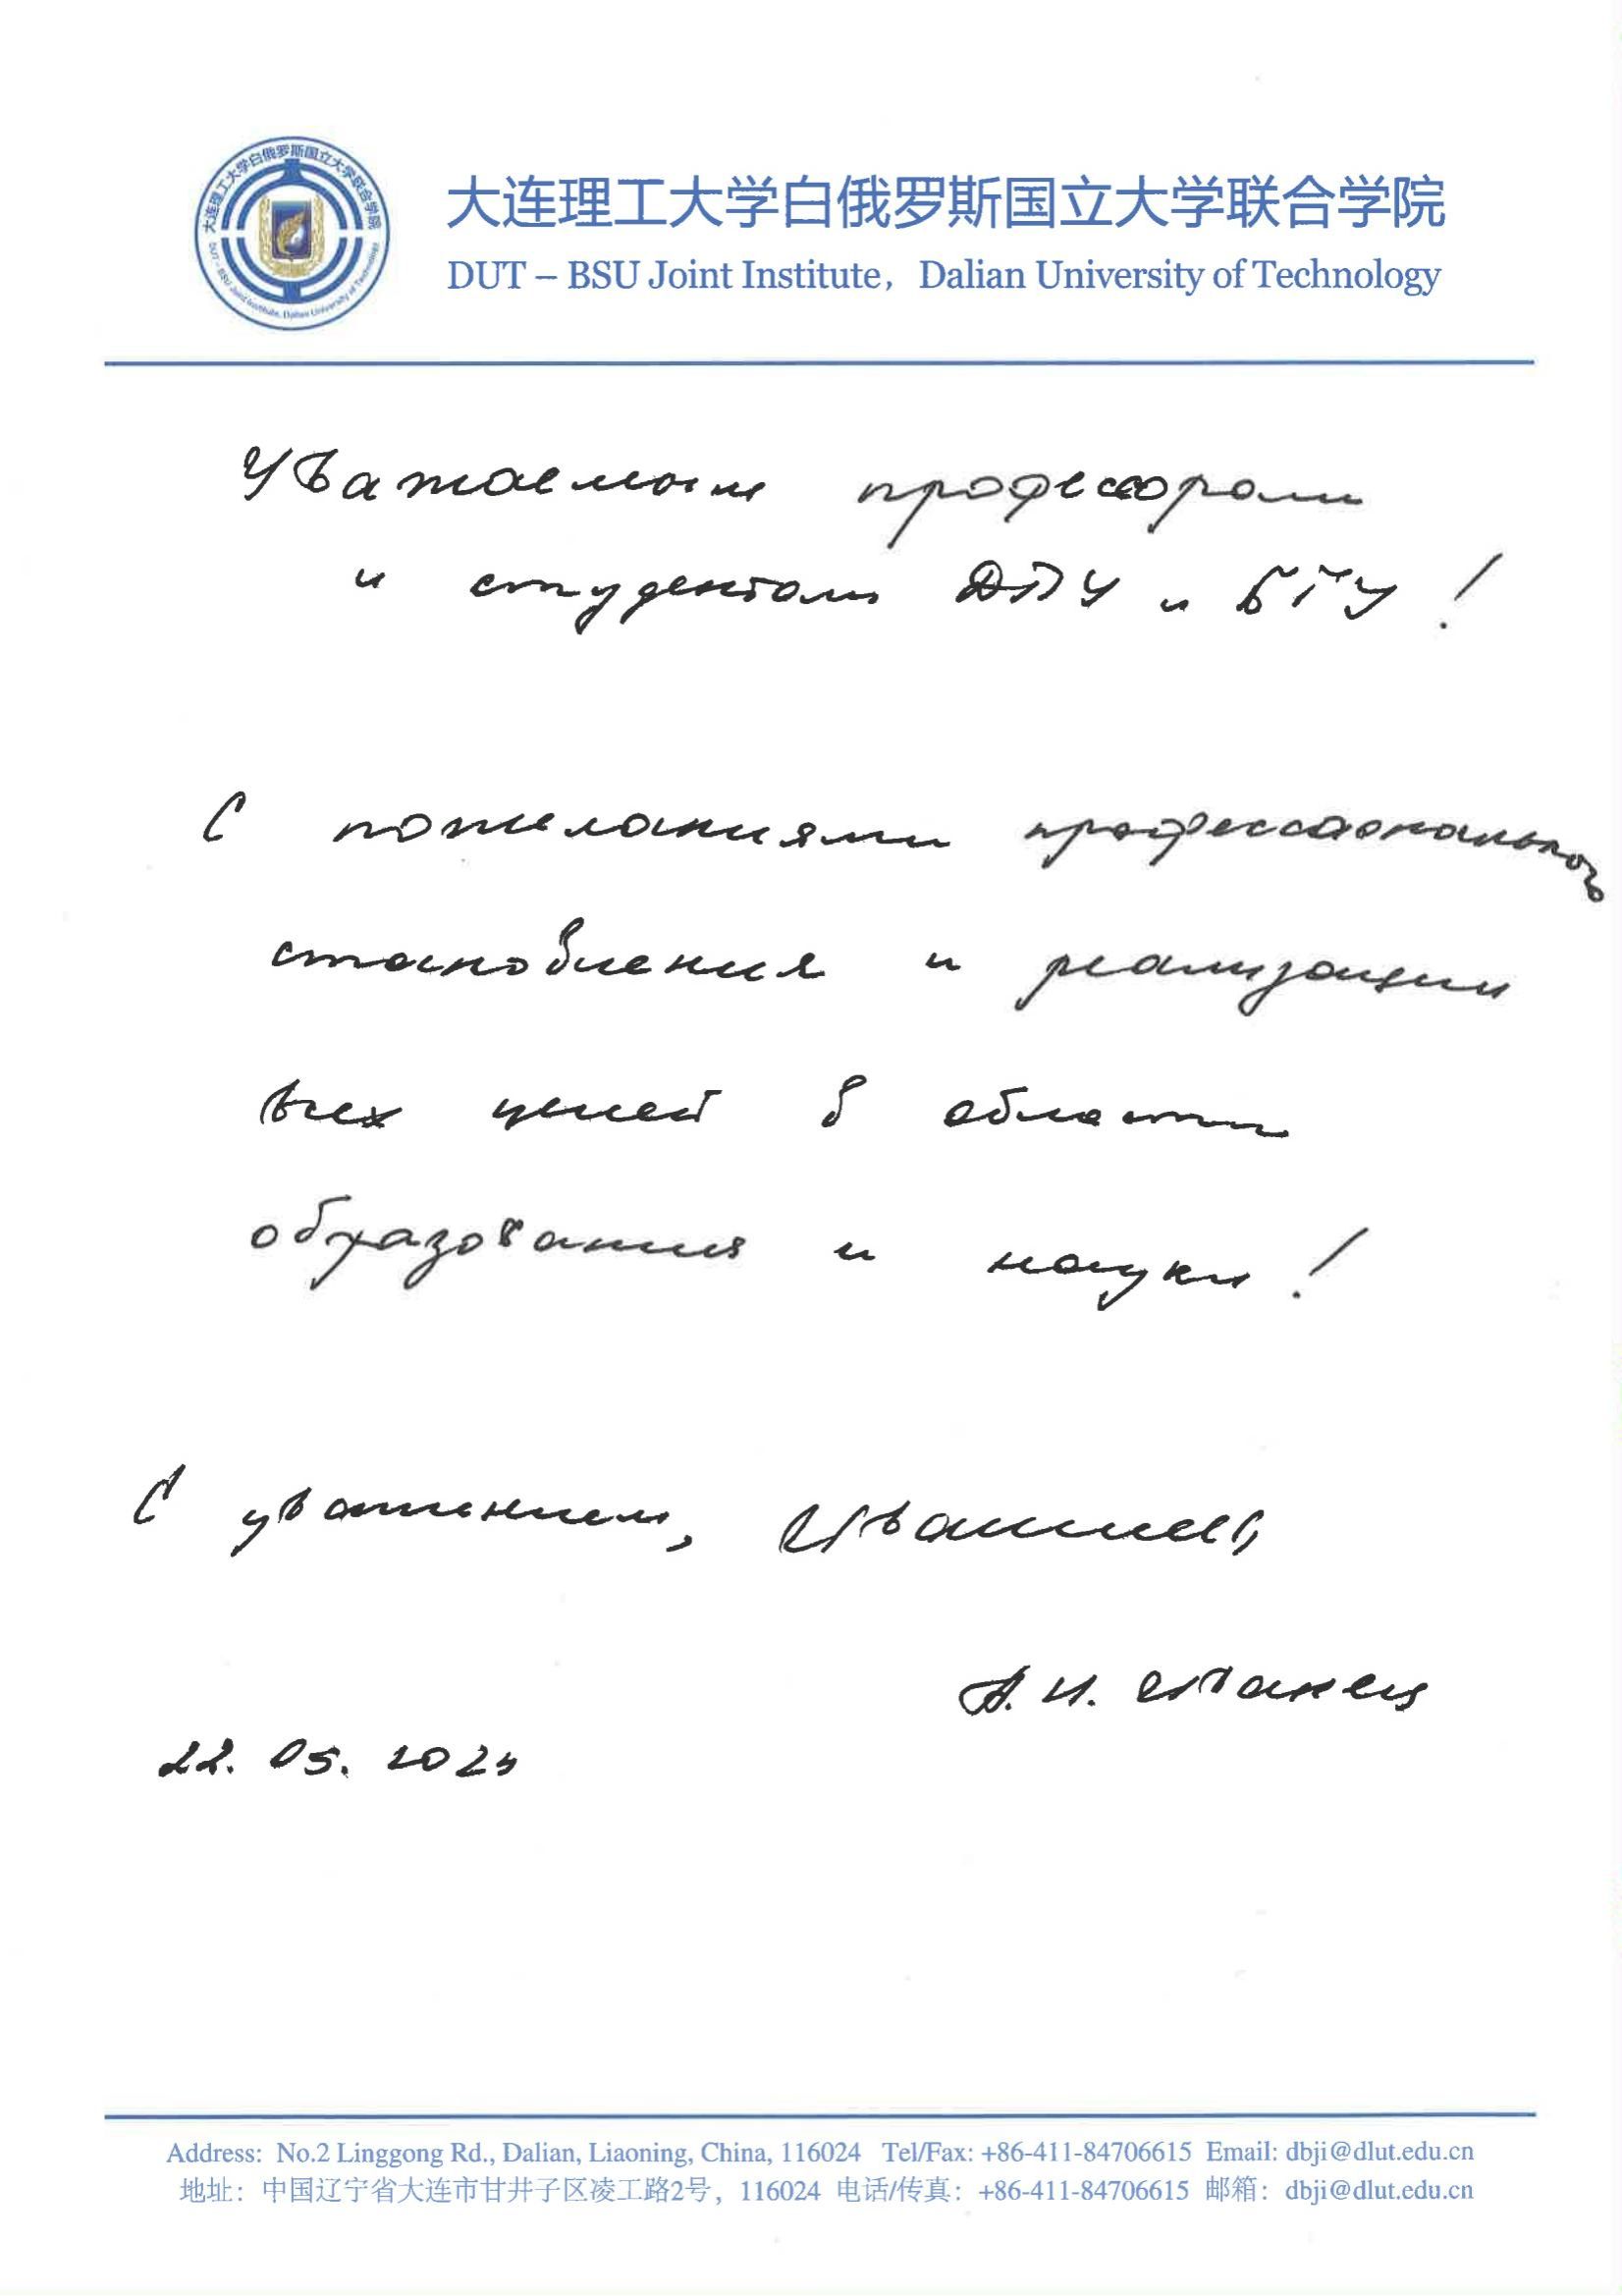 大连理工大学白俄罗斯国立大学联合学院
DUT – BSU Joint Institute, Dalian University of Technology
大连理工大学白俄罗斯国立大学联合学院
DUT - BSU Joint Institute, Dalian University of Technology
Уважаемым профессорам
и студентам ДПУ и БГУ!
С пожеланиями профессионального
становления и реализации
всех целей в области
образования и науки!
С уважением,
А.И. Иванец
22.05.2024
Address: No.2 Linggong Rd., Dalian, Liaoning, China, 116024 Tel/Fax: +86-411-84706615 Email: dbji@dlut.edu.cn
地址：中国辽宁省大连市甘井子区凌工路2号，116024 电话/传真：+86-411-84706615 邮箱：dbji@dlut.edu.cn